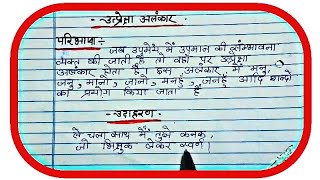 उत्प्रेक्षा अलंकार
परिभाषा:-
जब उपमेय में उपमान की संम्भावना
व्यक्त की जाती है तो वहाँ पर उत्प्रेक्षा
अलंकार होता है। इस अलंकार में मनु,
जनु, मानो, जानो, मनहु, जनहु आदि शब्दो
का प्रयोग किया जाता है
उदाहरण
ले चला साथ मैं तुझे कनक,
जो भिक्षुक लेकर स्वर्ण।